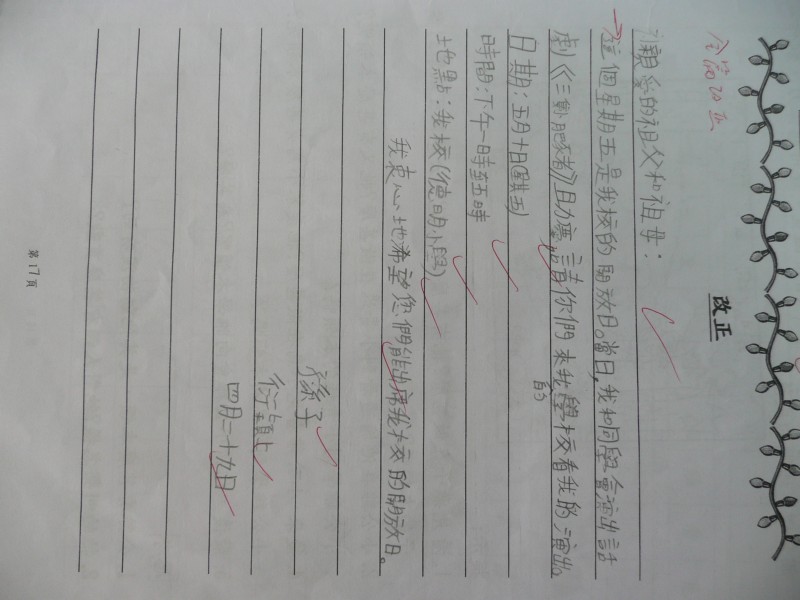 全篇改正
改正
親愛的祖父和祖母：
這個星期五是我校的開放日。當日,我和同學會演出話
劇《三隻小豬》
請你們來我學校看我的演出。
的
日期：五月十日(星期五)
時間：下午一時至五時
地點：我校(德明小學)
我衷心地希望您們能出席我校的開放日。
孫子
衍穎上
四月二十九日
第17頁